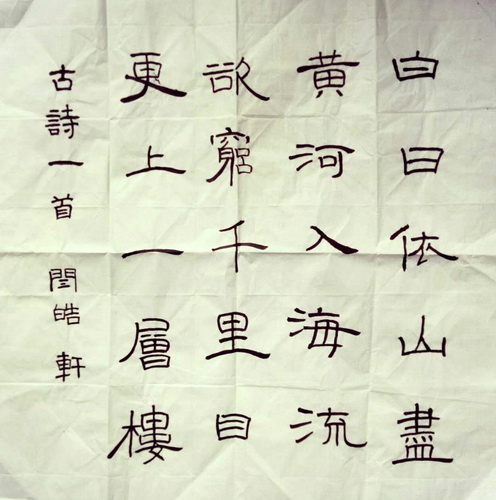 白日依山盡
黄河入海流
欲窮千里目
更上一層樓
古詩一首 閆皓軒